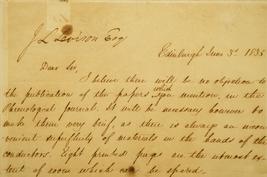 J L Levison Esq
Edinburgh June 3d 1835
Dear Sir,
I believe there will be no objection to
which
the publication of the papers you mention, in the
Phrenological Journal. It will be necessary however to
make them very brief, as there is always an incon
venient superfluity of materials in the hands of the
conductors. Eight printed pages are the utmost ex
tent of room which can be spared.